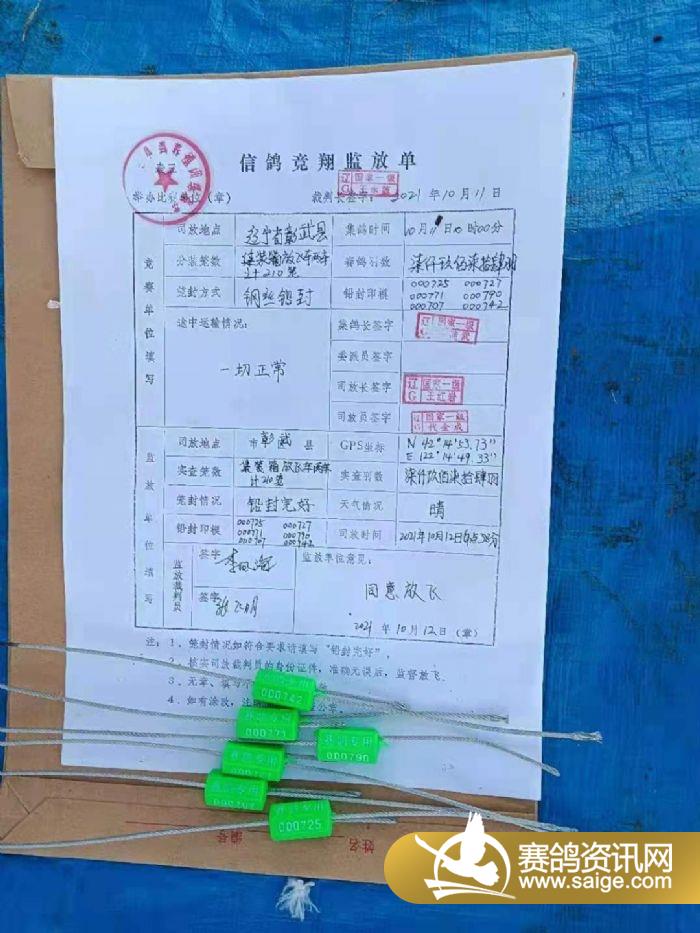 信鸽竞翔监放单
举办比赛单位（章）
裁判长签字：
2021年10月11日
辽 国家一级
G
竞赛单位填写
司放地点 辽宁省彰武县 集鸽时间 10月11日 时00分
分装笼数 集装箱放飞车两车 计210笼 赛鸽羽数 柒仟玖佰柒拾肆羽
笼封方式 钢丝铅封 铅封印模 000725 000727
000771 000790
000707 000742
途中运输情况： 集鸽长签字 辽 国家一级
G
一切正常
委派员签字
司放长签字 辽 国家一级
G 王红岩
司放员签字 辽 国家一级
G 代金成
监放单位填写
司放地点 市彰武县 GPS坐标 N 42°14'53.73"
E 122°14'49.33"
实查笼数 集装箱放飞车两车 计210笼 实查羽数 柒仟玖佰柒拾肆羽
笼封情况 铅封完好 天气情况 晴
铅封印模 000725 000727
000771 000790
000707 000742
司放时间 2021年10月12日
监放裁判员 签字
签字
监放单位意见：
同意放飞
2021年10月12日（章）
注：1、笼封情况如符合要求请填写“铅封完好”，
2、核实司放裁判员的身份证件，准确无误后，监督放飞。
3、无章、填写不
4、如有涂改，注
000742
000771
赛鸽专用
000790
赛鸽专用
000725
编号
姓名
赛鸽资讯网
www.saige.com